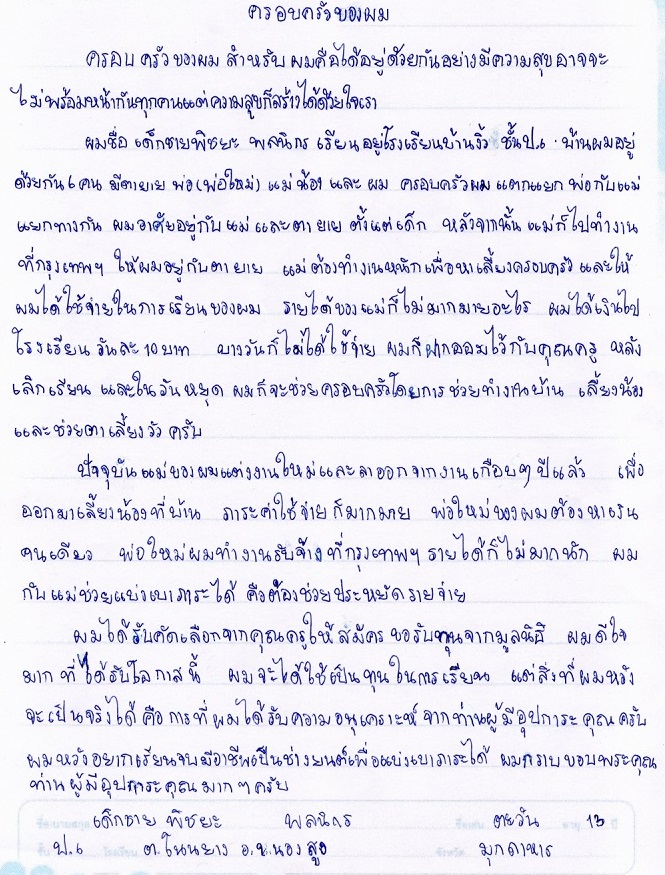 ครอบครัวของผม
ครอบครัวของผม สำหรับผมคือได้อยู่ด้วยกันอย่างมีความสุขอาจจะ
ไม่พร้อมหน้ากันทุกคนแต่ความสุขก็สร้างได้ด้วยใจเรา
ผมชื่อ เด็กชายพิชยะ พลนิกร เรียนอยู่โรงเรียนบ้านงิ้ว ชั้นป.๖ บ้านผมอยู่
ด้วยกัน ๖ คน มีตายาย พ่อ(พ่อใหม่) แม่ น้อง และ ผม ครอบครัวผมแตกแยก พ่อกับแม่
แยกทางกัน ผมอาศัยอยู่กับแม่และตา ยาย ตั้งแต่เด็ก หลังจากนั้น แม่ก็ไปทำงาน
ที่กรุงเทพฯ ให้ผมอยู่กับตา ยาย แม่ต้องทำงานหนักเพื่อหาเลี้ยงครอบครัว และให้
ผมได้ใช้จ่ายในการเรียนของผม รายได้ของแม่ก็ไม่มากมายอะไร ผมได้เงินไป
โรงเรียนวันละ 10 บาท บางวันก็ไม่ได้ใช้จ่าย ผมก็ฝากออมไว้กับคุณครู หลัง
เลิกเรียน และในวันหยุด ผมก็จะช่วยครอบครัวโดยการช่วยทำงานบ้าน เลี้ยงน้อง
และช่วยตาเลี้ยงวัว ครับ
ปัจจุบันแม่ของผมแต่งงานใหม่และลาออกจากงานเกือบๆ ปีแล้ว เพื่อ
ออกมาเลี้ยงน้องที่บ้าน ภาระค่าใช้จ่ายก็มากมาย พ่อใหม่ของผมต้องหาเงิน
คนเดียว พ่อใหม่ผมทำงานรับจ้างที่กรุงเทพฯ รายได้ก็ไม่มากนัก ผม
กับแม่ช่วยแบ่งเบาภาระได้ คือต้องช่วยประหยัดรายจ่าย
ผมได้รับคัดเลือกจากคุณครูให้สมัครขอรับทุนจากมูลนิธิ ผมดีใจ
มาก ที่ได้รับโอกาสนี้ ผมจะได้ใช้เป็นทุนในการเรียน แต่สิ่งที่ผมหวัง
จะเป็นจริงได้ คือ การที่ผมได้รับความอนุเคราะห์จากท่านผู้มีอุปการะคุณครับ
ผมหวังอยากเรียนจบมีอาชีพเป็นช่างยนต์เพื่อแบ่งเบาภาระได้ ผมกราบขอบพระคุณ
ท่านผู้มีอุปการะคุณมาก ๆ ครับ
เด็กชาย พิชยะ พลนิกร ตะวัน 13
ป.๖ ต.โนนยาง อ.หนองสูง มุกดาหาร